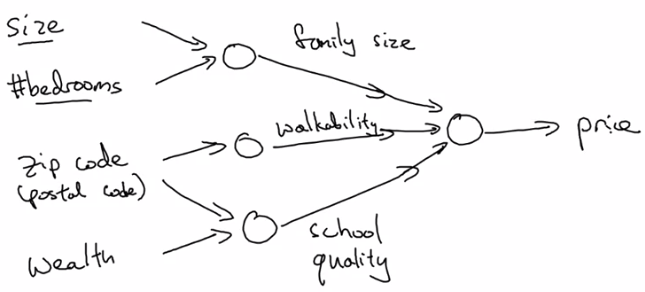 size
#bedrooms
zip code
(postal code)
wealth
family size
walkability
school
quality
price